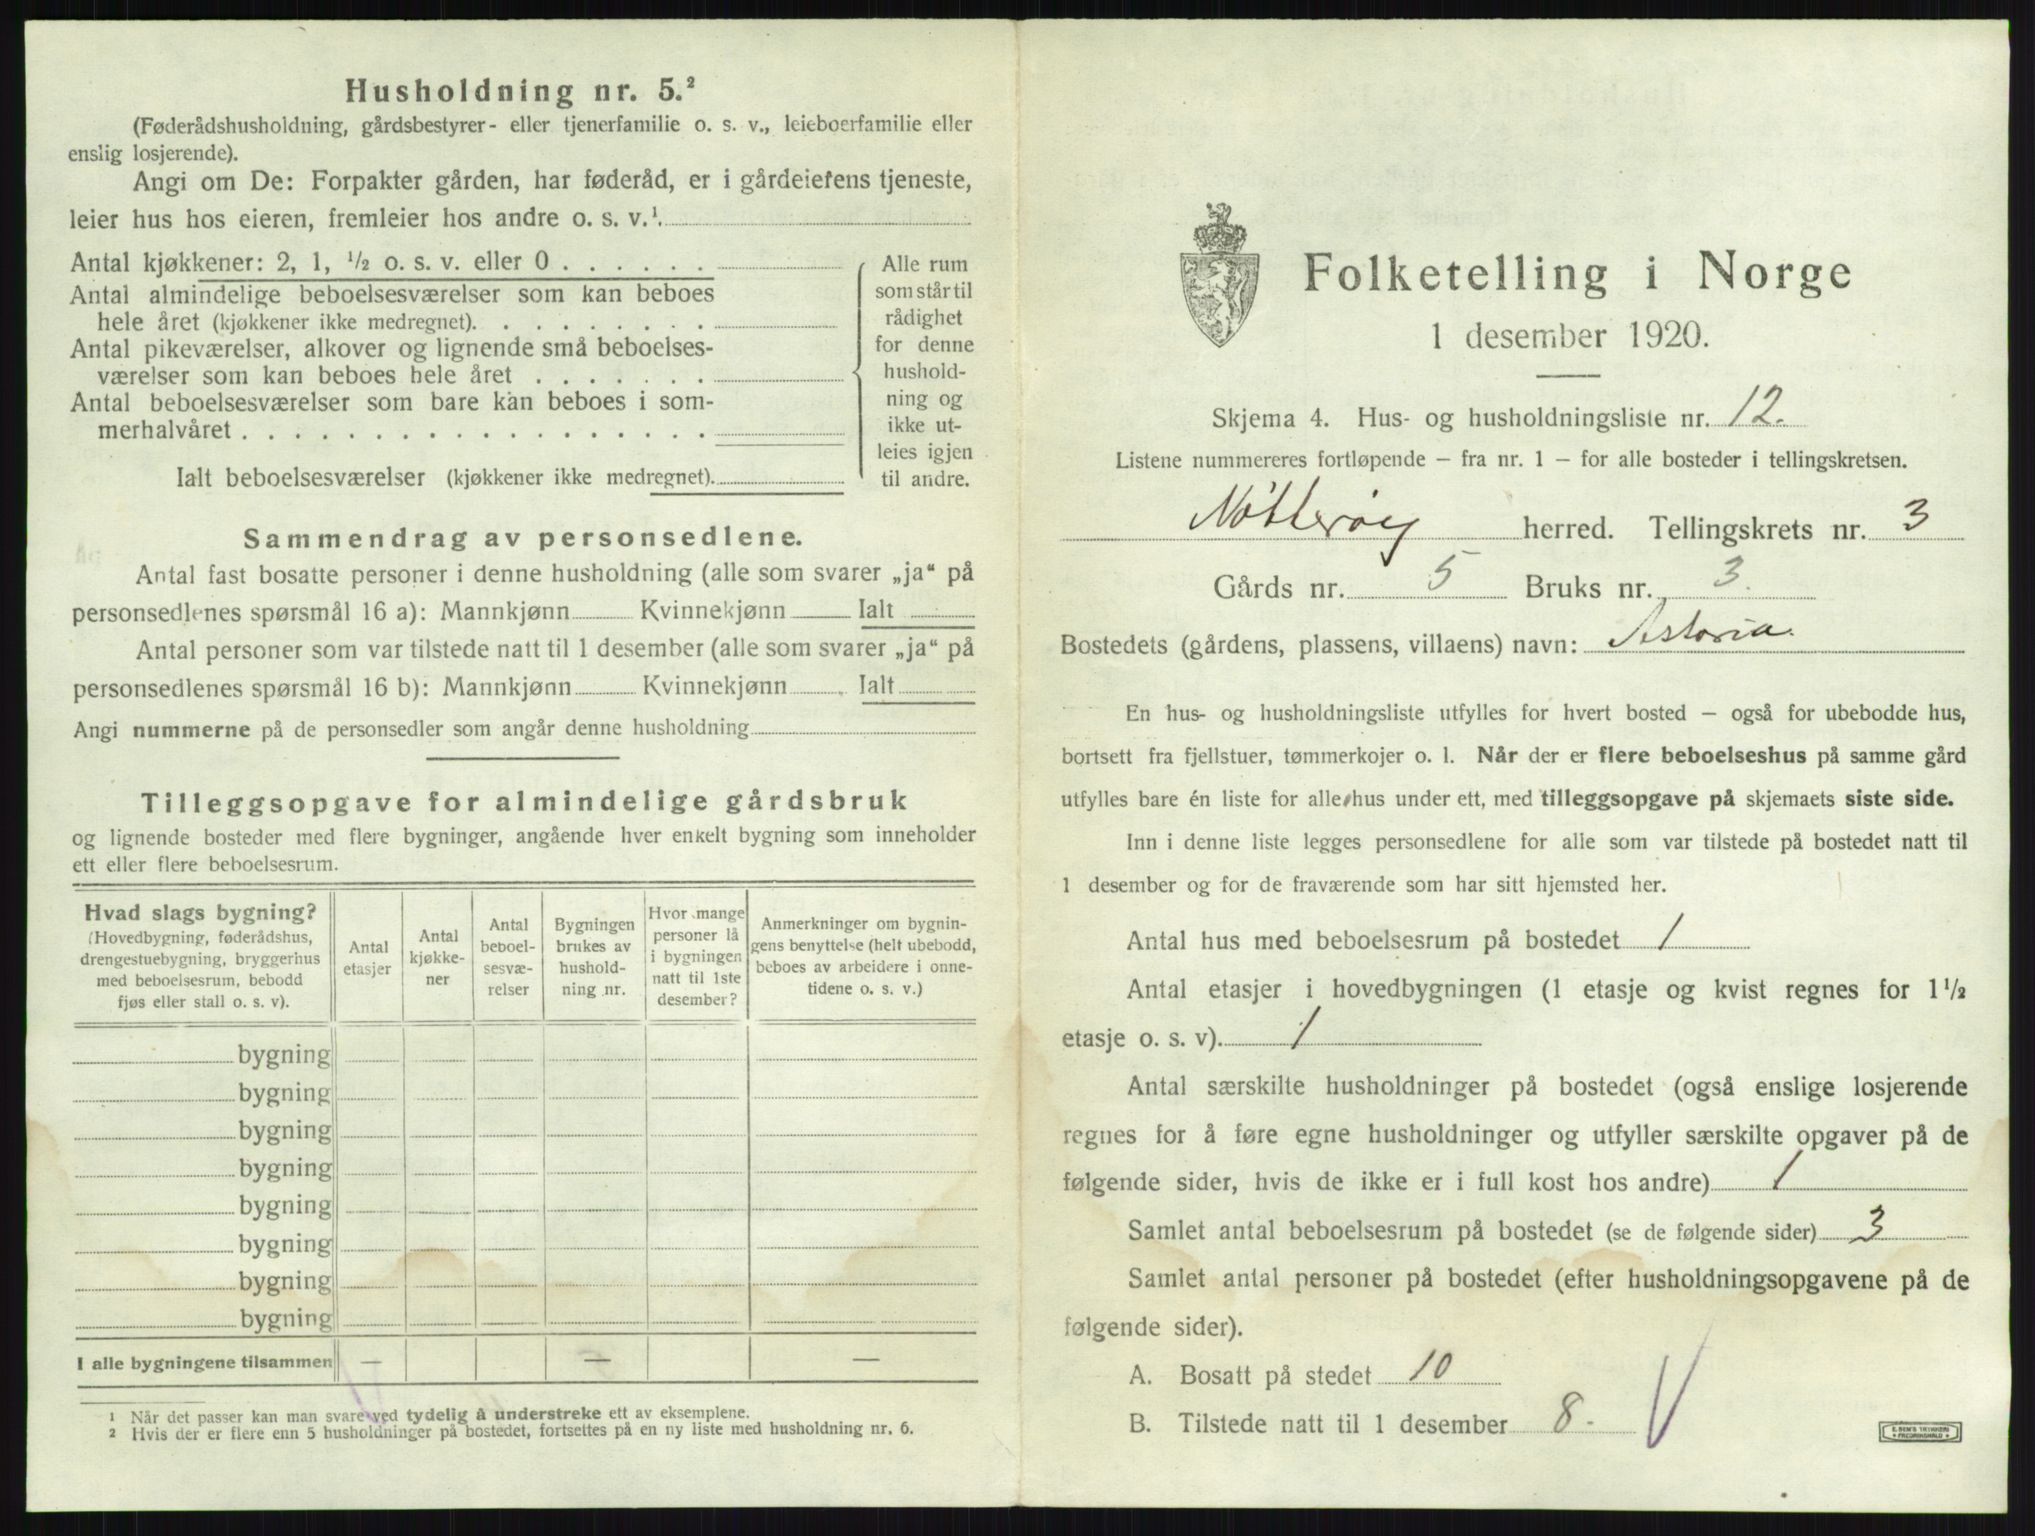 Husholdning nr. 5.²
(Føderådshusholdning, gårdsbestyrer- eller tjenerfamilie o. s. v., leieboerfamilie eller
enslig losjerende).
Angi om De: Forpakter gården, har føderåd, er i gårdeierens tjeneste,
leier hus hos eieren, fremleier hos andre o. s. v.¹.
Antal kjøkkener: 2, 1, ½ o. s. v. eller 0 . . . . . .
Antal almindelige beboelsesværelser som kan beboes
hele året (kjøkkener ikke medregnet). . . . . . . . .
Antal pikeværelser, alkover og lignende små beboelses-
værelser som kan beboes hele året . . . . . . .
Antal beboelsesværelser som bare kan beboes i som-
merhalvåret . . . . . . . . . . . . . . . . . .
Ialt beboelsesværelser (kjøkkener ikke medregnet).
Alle rum
som står til
rådighet
for denne
hushold-
ning og
ikke ut-
leies igjen
til andre.
Sammendrag av personsedlene.
Antal fast bosatte personer i denne husholdning (alle som svarer „ja“ på
personsedlenes spørsmål 16 a): Mannkjønn Kvinnekjønn Ialt
Antal personer som var tilstede natt til 1 desember (alle som svarer „ja“ på
personsedlenes spørsmål 16 b): Mannkjønn Kvinnekjønn Ialt
Angi nummerne på de personsedler som angår denne husholdning
Tilleggsopgave for almindelige gårdsbruk
og lignende bosteder med flere bygninger, angående hver enkelt bygning som inneholder
ett eller flere beboelsesrum.
Hvad slags bygning?
(Hovedbygning, føderådshus,
drengestuebygning, bryggerhus
med beboelsesrum, bebodd
fjøs eller stall o. s. v).
Antal
etasjer
Antal
kjøkke-
ner
Antal
beboel-
sesvæ-
relser
Bygningen
brukes av
hushold-
ning nr.
Hvor mange
personer lå
i bygningen
natt til 1ste
desember?
Anmerkninger om bygnin-
gens benyttelse (helt ubebodd,
beboes av arbeidere i onne-
tidene o. s. v.)
bygning
bygning
bygning
bygning
bygning
bygning
bygning
bygning
I alle bygningene tilsammen — — —
¹ Når det passer kan man svare ved tydelig å understreke ett av eksemplene.
² Hvis der er flere enn 5 husholdninger på bostedet, fortsettes på en ny liste med husholdning nr. 6.
Folketelling i Norge
1 desember 1920.
Skjema 4. Hus- og husholdningsliste nr. 12.
Listene nummereres fortløpende – fra nr. 1 – for alle bosteder i tellingskretsen.
Nøtterøy herred. Tellingskrets nr. 3
Gårds nr. 5 Bruks nr. 3.
Bostedets (gårdens, plassens, villaens) navn: Astoria.
En hus- og husholdningsliste utfylles for hvert bosted – også for ubebodde hus,
bortsett fra fjellstuer, tømmerkojer o. l. Når der er flere beboelseshus på samme gård
utfylles bare én liste for alle hus under ett, med tilleggsopgave på skjemaets siste side.
Inn i denne liste legges personsedlene for alle som var tilstede på bostedet natt til
1 desember og for de fraværende som har sitt hjemsted her.
Antal hus med beboelsesrum på bostedet 1
Antal etasjer i hovedbygningen (1 etasje og kvist regnes for 1½
etasje o. s. v). 1
Antal særskilte husholdninger på bostedet (også enslige losjerende
regnes for å føre egne husholdninger og utfyller særskilte opgaver på de
følgende sider, hvis de ikke er i full kost hos andre) 1
Samlet antal beboelsesrum på bostedet (se de følgende sider) 3
Samlet antal personer på bostedet (efter husholdningsopgavene på de
følgende sider).
A. Bosatt på stedet 10
B. Tilstede natt til 1 desember 8.
E. SEM'S TRYKKERI
FREDRIKSHALD